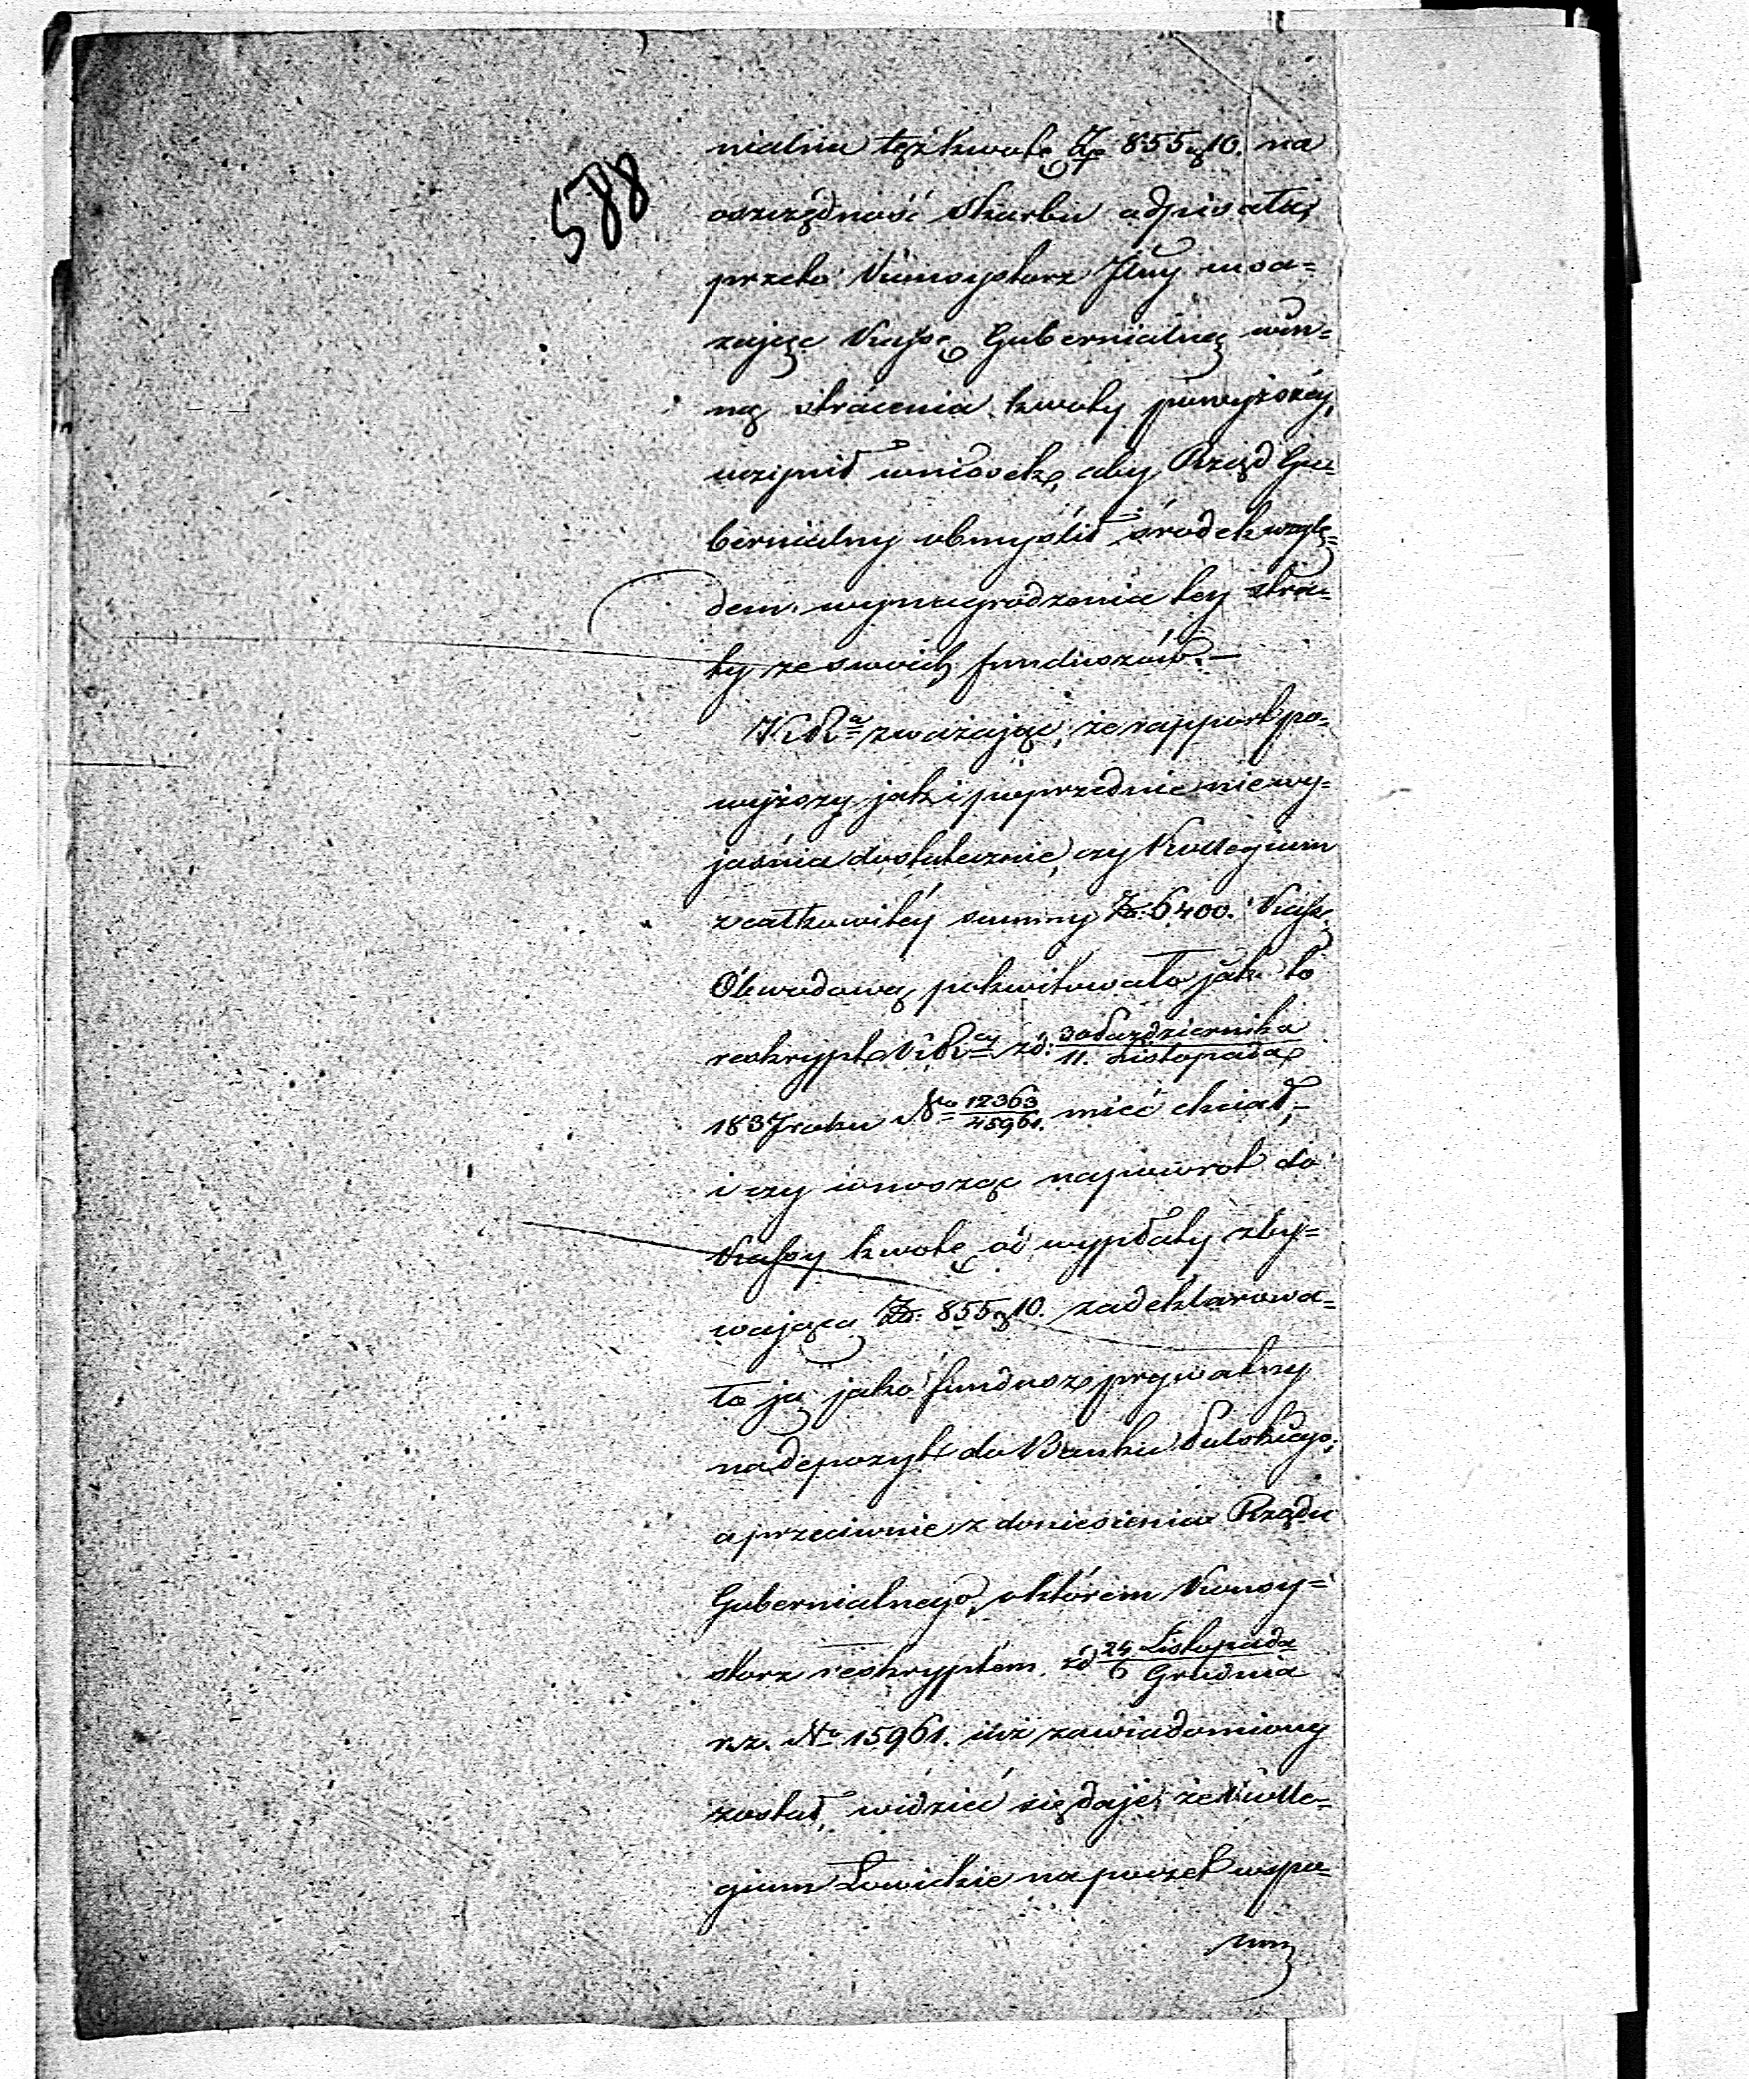 588
nialna tęż kwotę Zp 855 g 10. na
oszczędność Skarbu odpisała,
przeto Konsystorz Jlny uwa=
żając Kassę Gubernialną win=
ną stracenia kwoty powyższéj,
uczynił wniosek, aby Rząd Gu=
bernialny obmyślił środek wzglę=
dem wynagrodzenia téy stra=
ty ze swoich funduszów.—
K. Rª zważając, że rapport po=
wyższy jak i poprzednie nie wy=
jaśnia dostatecznie, czy Kollegium
z całkowitéy summy Zp: 6400. Kassę
Obwodową pokwitowało, jak to
reskrypt K. Rcy z d: 30 Października / 11. Listopada
1837 roku No 12363/45961. mieć chciał,—
i czy wnosząc napowrót do
Kassy kwotę od wypłaty zby=
wającą Zp: 855 g 10. zadeklarowa=
ło ją jako fundusz prywatny
na depozyt do Banku Polskiego;
a przeciwnie z doniesienia Rządu
Gubernialnego, o którém Konsy=
storz reskryptem z d 24 Listopada / 6 Grudnia
r. z. No 15961. już zawiadomiony
został, widzieć się daje, że Kolle=
gium Łowickie na poczet wspo=
mn